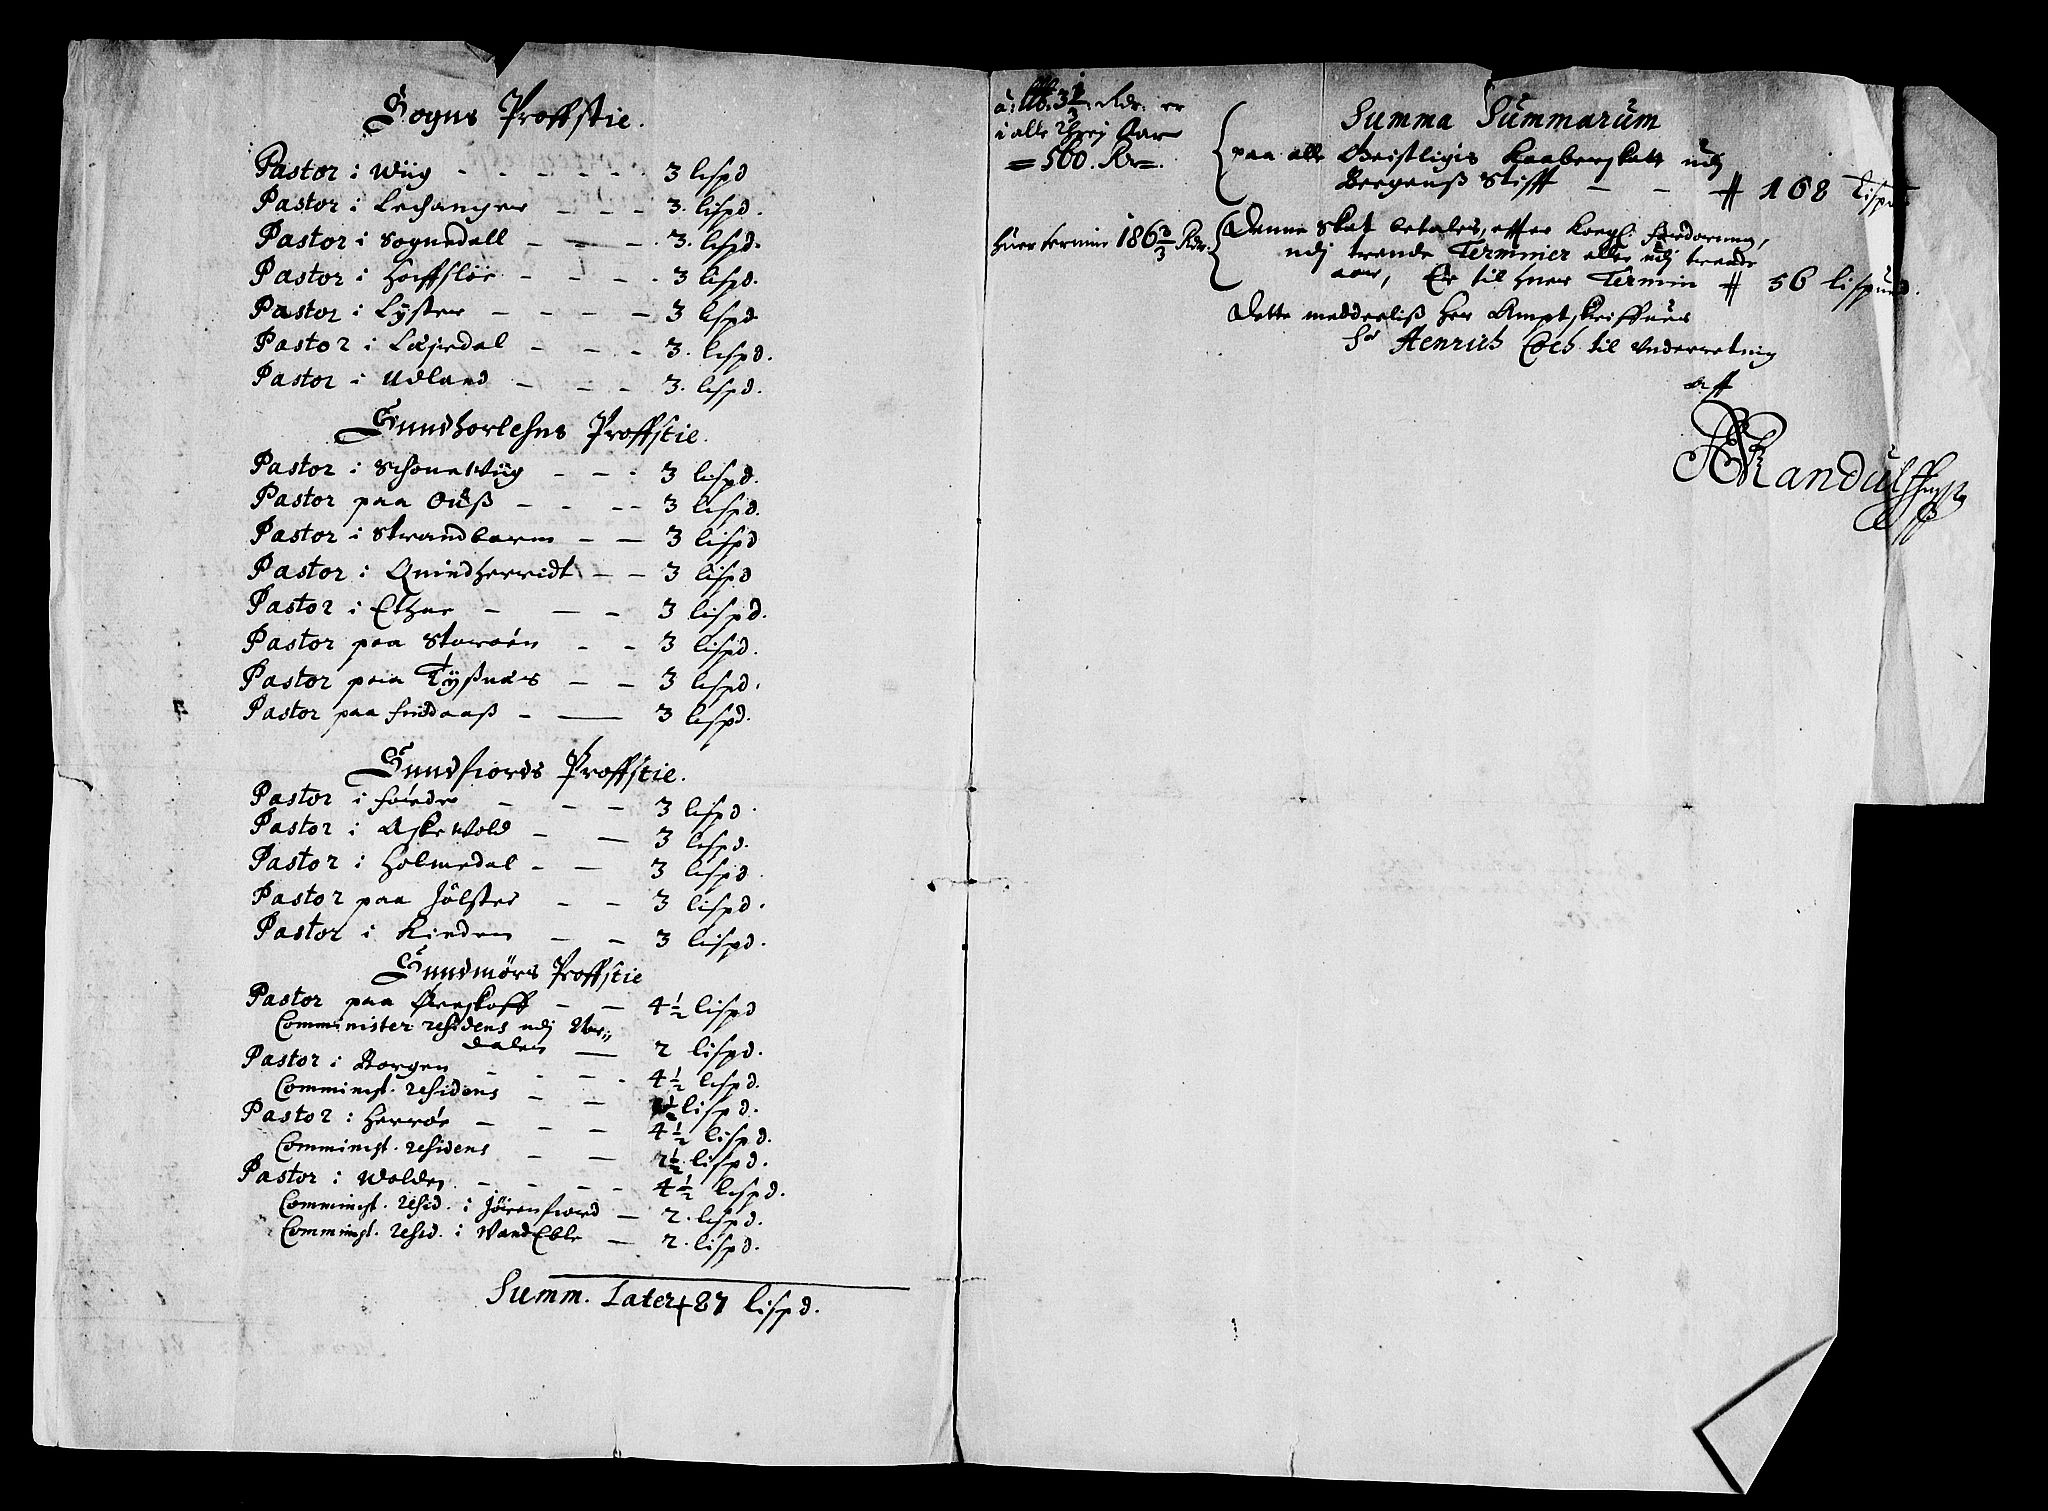 Sogns Proffstie.
Pastor i Wiig - - - - - 3 lispd
Pastor i Lechanger - - - 3. lispd.
Pastor i Sognedall - - - 3. lispd.
Pastor i Haffsloe - - - - 3 lispd.
Pastor i Lyster - - - - 3 lispd
Pastor i Lærdal - - - 3. lispd.
Pastor i Urland - - - 3. lispd.
Sundhorlehns Proffstie.
Pastor i Schonewiig - - - 3 lispd.
Pastor paa Ouß - - - - 3 lispd.
Pastor i Strandbarm - - 3 lispd
Pastor i Quindherridt - - 3 lispd
Pastor i Ethne - - - 3 lispd.
Pastor paa Storøen - - 3 lispd.
Pastor paa Tyßnæs - - 3 lispd.
Pastor paa findaaß - - 3 lispd.
Sundfiords Proffstie.
Pastor i førde - - - 3 lispd.
Pastor i Askewold - - 3 lispd.
Pastor i Holmedal - - 3 lispd.
Pastor paa Jölster - - 3 lispd.
Pastor i Kinden - - 3 lispd.
Sundmörs Proffstie
Pastor paa Ørskoff - - 4½ lispd
Comminister residens udj Nor-
dalen - 2 lispd.
Pastor i Borgen - - - - 4½ lispd.
Comminist. residens - - lispd.
Pastor i Herröe - - - 4½ lispd.
Comminist. residens - - 2½ lispd.
Pastor i Wolden - - - - 4½ lispd.
Comminist. resid. i Jörenfiord - 2. lispd.
Comminst. resid. i WandElle - 2. lispd.
Summ. Later 87 lispd.
à 3⅓ Rdr. er
i alle Threj Aar
= 560. Rdr.
Summa Summarum
paa alle Geistligis Kaaberskatt udj
Bergenß Stifft - - 168 Lispd
hver termin 186⅔ Rdr.
Denne Skat betales, effter Kongl. forordning,
udj trende Terminer eller udj trende
aar, Er til hver Termin 56 lispund.
Dette meddeeliß her Amptskriffuer
Sr Henrich Coch til underretning
aff
Randulff